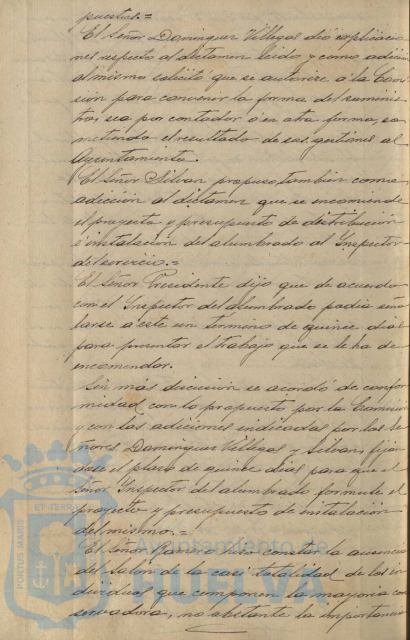 puestas.=
El Señor Dominguez Villegas dió explicacio
nes respecto al dictamen leido y como adición
al mismo solicitó que se autorice á la Comi
sión para convenir la forma del suminis
tro, sea por contador ó en otra forma, so
metiendo el resultado de sus gestiones al
Ayuntamiento.
El Señor Silvan propuso, también como
adicción al dictamen que se encomiende
el proyecto y presupuesto de distribución
é instalación del alumbrado al Inspector
del servicio.=
El Señor Presidente dijo que de acuerdo
con el Inspector del alumbrado podia seña
larse á este un termino de quince dias
para presentar el trabajo que se le ha de
encomendar.
Sin más discusión se acordó de confor
midad con lo propuesto por la Comisión
y con las adiciones indicadas por los Se
ñores Dominguez Villegas y Silvan, fijan
dose el plazo de quince dias para que el
Señor Inspector del alumbrado formule el
proyecto y presupuesto de instalación
del mismo.=
El Señor hizo constar la ausencia
del Salón de la casi totalidad de los in
dividuos que componen la mayoría con
servadora, no obstante la importancia
PORTUS MARIS ET TERR
Ayuntamiento de